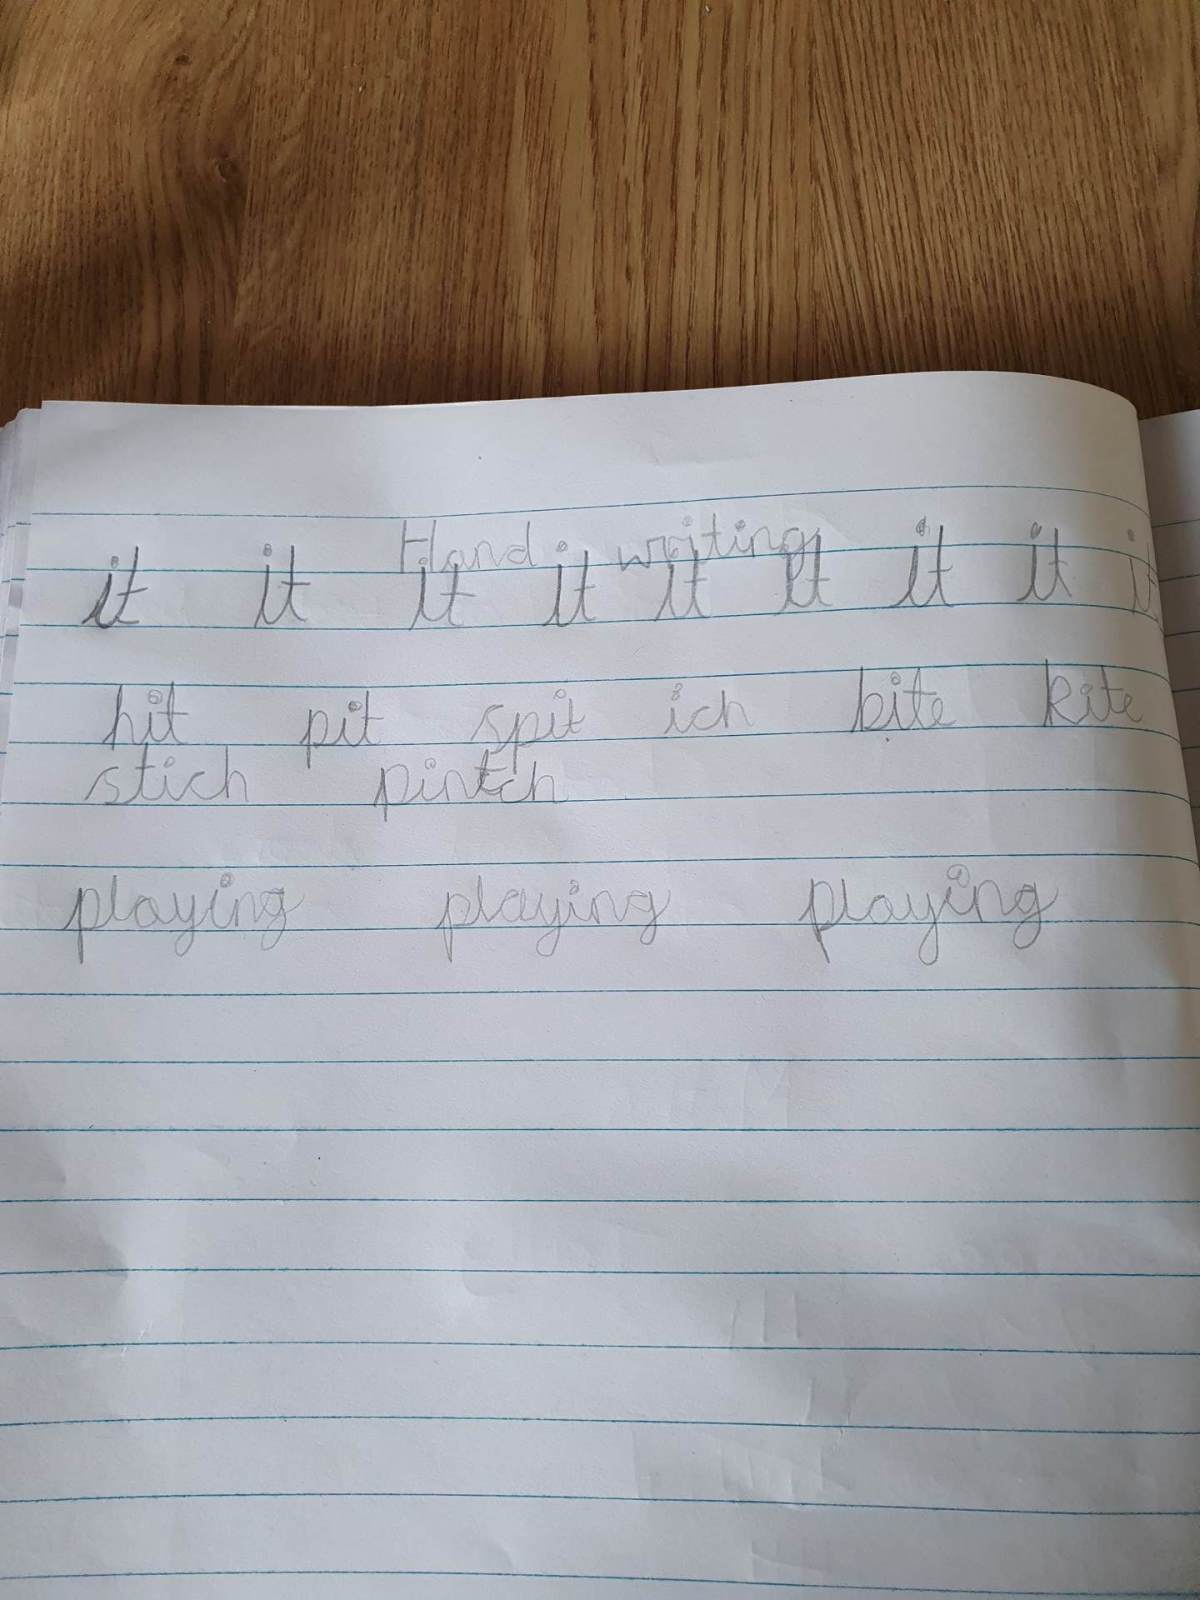 Hand writing
it it it it it it it it it
hit pit spit ich bite kite
stich pintch
playing playing playing